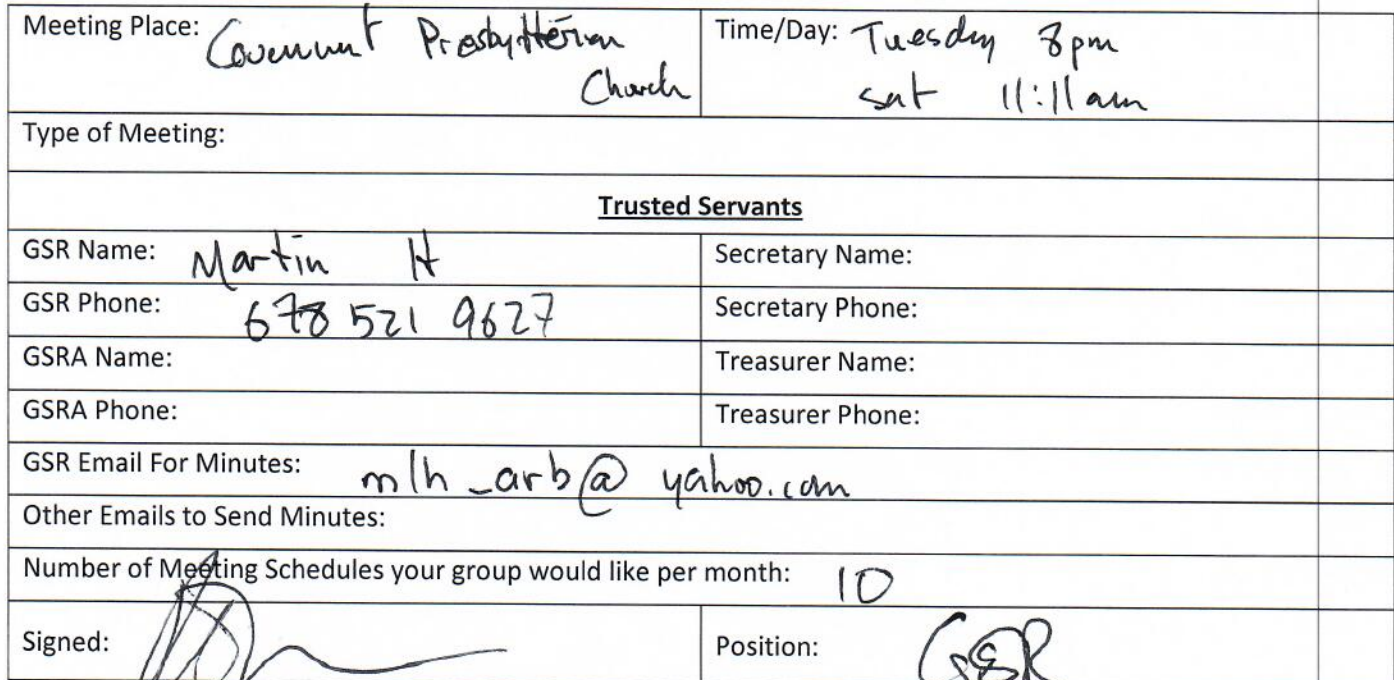 Meeting Place: Covenant Presbyterian
Church
Time/Day: Tuesday 8pm
sat 11:11am
Type of Meeting:
Trusted Servants
GSR Name: Martin H
Secretary Name:
GSR Phone: 678 521 9627
Secretary Phone:
GSRA Name:
Treasurer Name:
GSRA Phone:
Treasurer Phone:
GSR Email For Minutes: mlh_arb@yahoo.com
Other Emails to Send Minutes:
Number of Meeting Schedules your group would like per month: 10
Signed:
Position: GSR